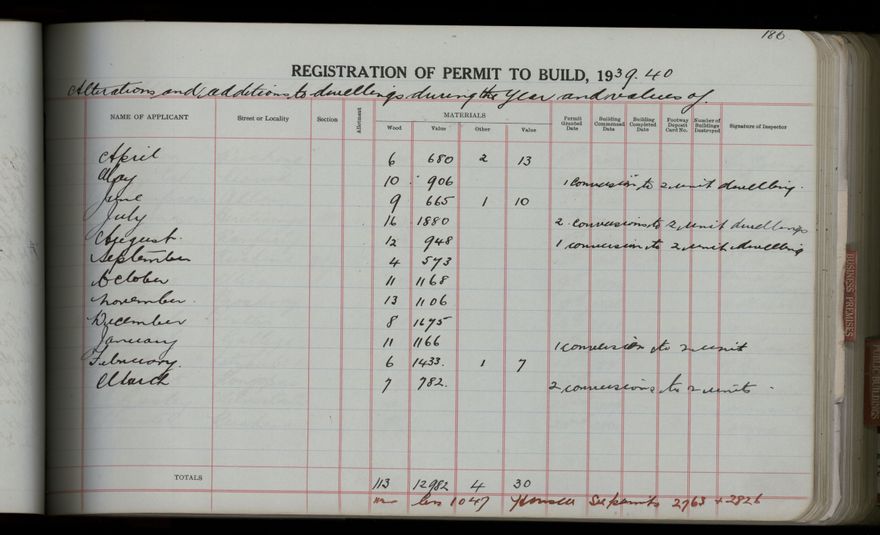 186
REGISTRATION OF PERMIT TO BUILD, 1939.40
Alterations and additions to dwellings during the Year and values of.
NAME OF APPLICANT Street or Locality Section Allotment MATERIALS Wood Value Other Value Permit Granted Date Building Commenced Date Building Completed Date Footway Deposit Card No. Number of Buildings Destroyed Signature of Inspector
April 6 680 2 13
May 10 906 1 conversion to 2 unit dwelling.
June 9 665 1 10
July 16 1880 2 conversions to 2 unit dwellings
August. 12 948 1 conversion to 2 unit dwelling
September 4 573
October 11 1168
November. 13 1106
December 8 1675
January 11 1166 1 conversion to 2 unit
February. 6 1433. 1 7
March 7 782. 2 conversions to 2 units.
TOTALS 113 12982 4 30
less 1047 See permits 2763 + 2826
BUSINESS PREMISES
PUBLIC BUILDINGS